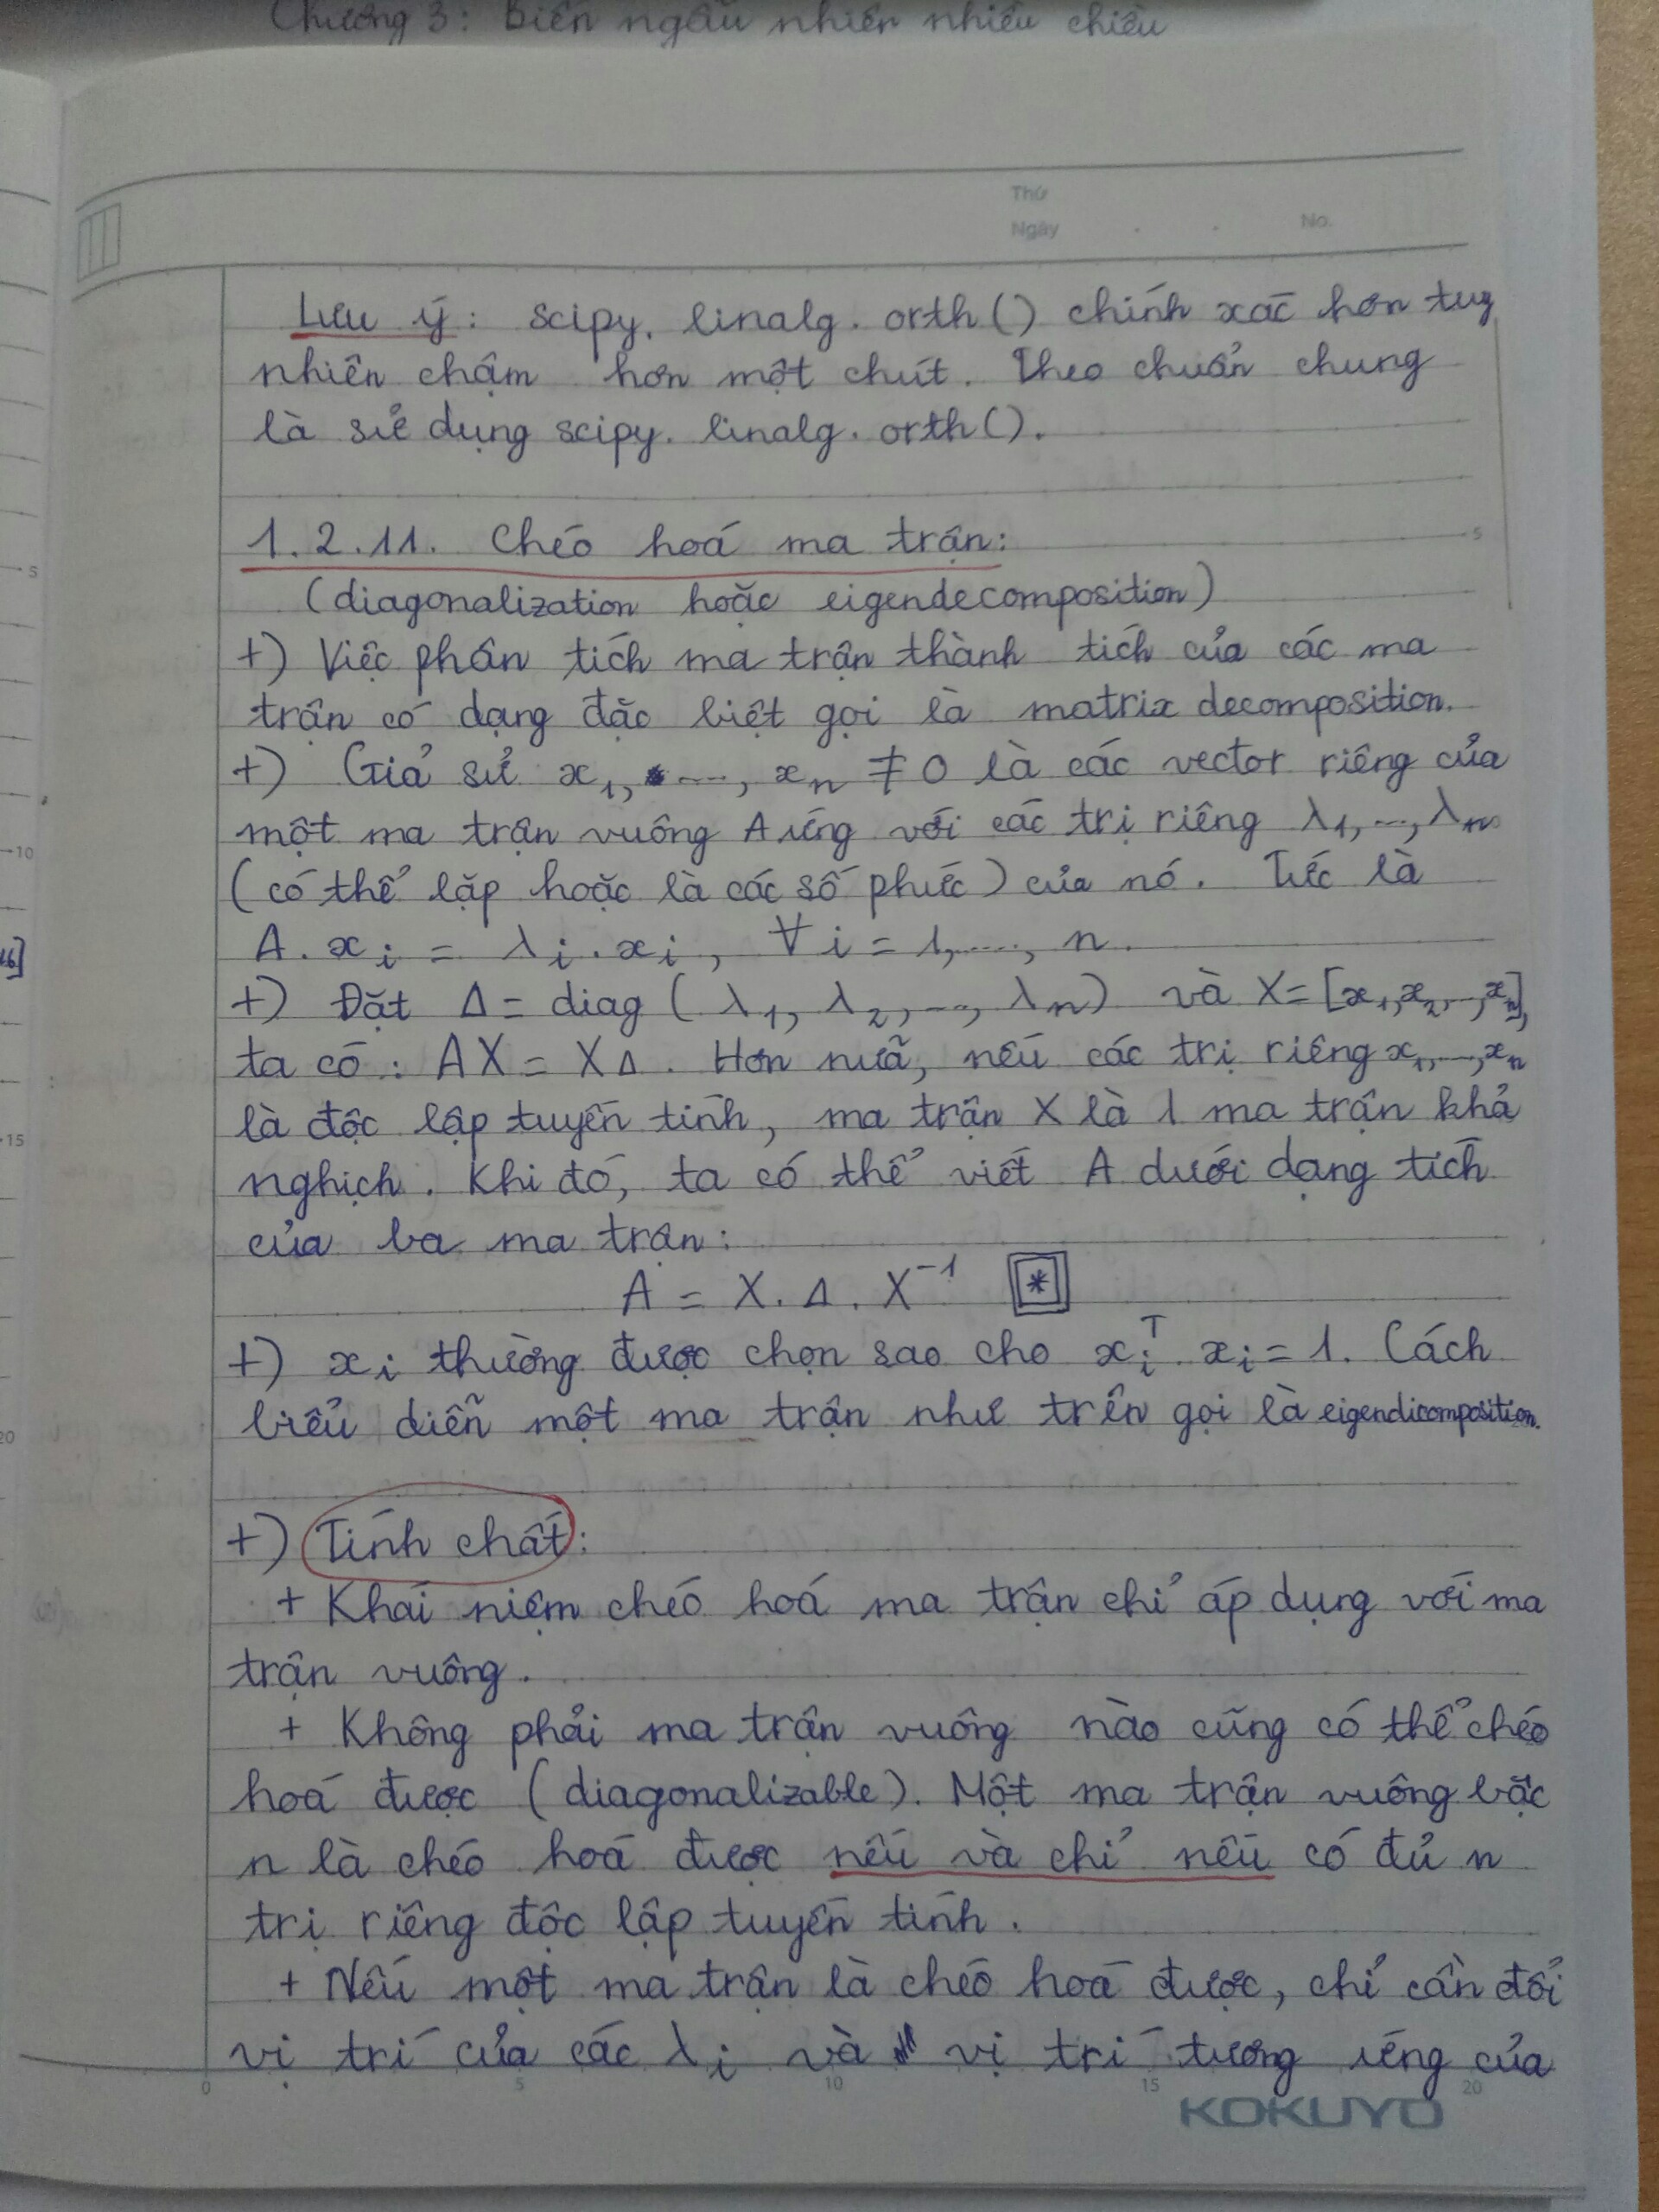 Chương 3: Biến ngẫu nhiên nhiều chiều
Thứ
Ngày . . No.
Lưu ý: scipy. linalg. orth() chính xác hơn tuy
nhiên chậm hơn một chút. Theo chuẩn chung
là sử dụng scipy. linalg. orth().
1.2.11. Chéo hoá ma trận:
5
(diagonalization hoặc eigendecomposition)
5
+) Việc phân tích ma trận thành tích của các ma
trận có dạng đặc biệt gọi là matrix decomposition.
+) Giả sử x₁, ..., xₙ ≠ 0 là các vector riêng của
một ma trận vuông A ứng với các trị riêng λ₁, ..., λₙ
10
(có thể lặp hoặc là các số phức) của nó. Tức là
A.xᵢ = λᵢ.xᵢ, ∀i = 1, ..., n.
16]
+) Đặt Δ = diag (λ₁, λ₂, ..., λₙ) và X = [x₁, x₂, ..., xₙ],
ta có: AX = XΔ. Hơn nữa, nếu các trị riêng x₁, ..., xₙ
là độc lập tuyến tính, ma trận X là 1 ma trận khả
15
nghịch. Khi đó, ta có thể viết A dưới dạng tích
của ba ma trận:
A = X.Δ.X⁻¹ [*]
+) xᵢ thường được chọn sao cho xᵢᵀ.xᵢ = 1. Cách
biểu diễn một ma trận như trên gọi là eigendicomposition.
20
+) Tính chất:
+ Khái niệm chéo hoá ma trận chỉ áp dụng với ma
trận vuông.
+ Không phải ma trận vuông nào cũng có thể chéo
hoá được (diagonalizable). Một ma trận vuông bậc
n là chéo hoá được nếu và chỉ nếu có đủ n
trị riêng độc lập tuyến tính.
+ Nếu một ma trận là chéo hoá được, chỉ cần đổi
vị trí của các λᵢ và vị trí tương ứng của
0 5 10 15 20
KOKUYO